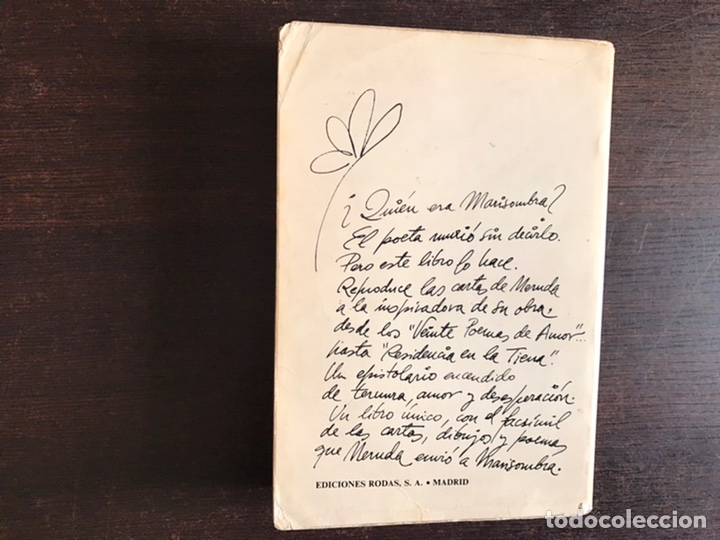 ¿Quién era Marisombra?
El poeta murió sin decirlo.
Pero este libro lo hace.
Reproduce las cartas de Neruda
a la inspiradora de su obra,
desde los "Veinte Poemas de Amor"...
hasta "Residencia en la Tierra".
Un epistolario encendido
de ternura, amor y desesperación.
Un libro único, con el facsímil
de las cartas, dibujos y poemas
que Neruda envió a Marisombra.
EDICIONES RODAS, S. A. • MADRID
todocoleccion